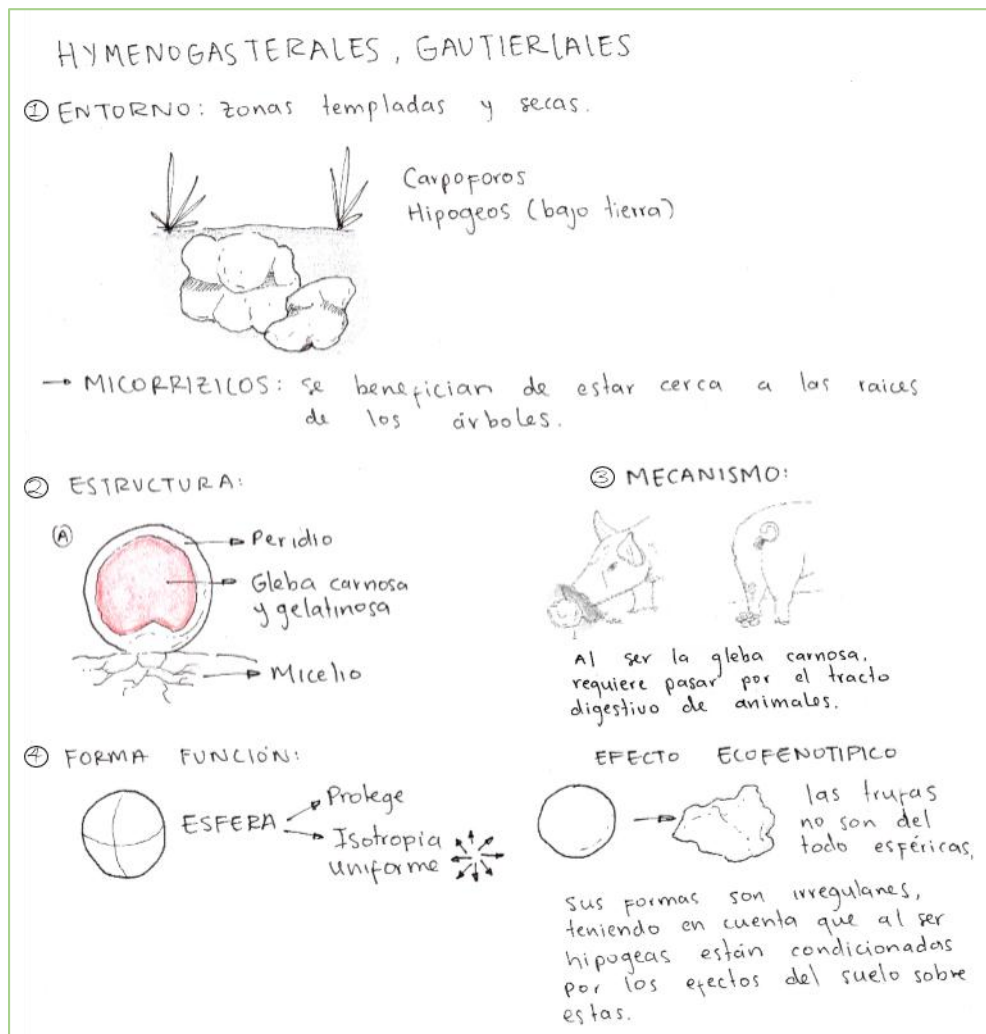 HYMENOGASTERALES, GAUTIERIALES
① ENTORNO: zonas templadas y secas.
Carpoforos
Hipogeos (bajo tierra)
→ MICORRIZICOS: se benefician de estar cerca a las raices
de los árboles.
② ESTRUCTURA:
A
Peridio
Gleba carnosa
y gelatinosa
Micelio
③ MECANISMO:
Al ser la gleba carnosa,
requiere pasar por el tracto
digestivo de animales.
④ FORMA FUNCIÓN:
ESFERA
Protege
Isotropia
uniforme
EFECTO ECOFENOTIPICO
las trufas
no son del
todo esféricas,
Sus formas son irregulares,
teniendo en cuenta que al ser
hipogeas están condicionadas
por los efectos del suelo sobre
estas.